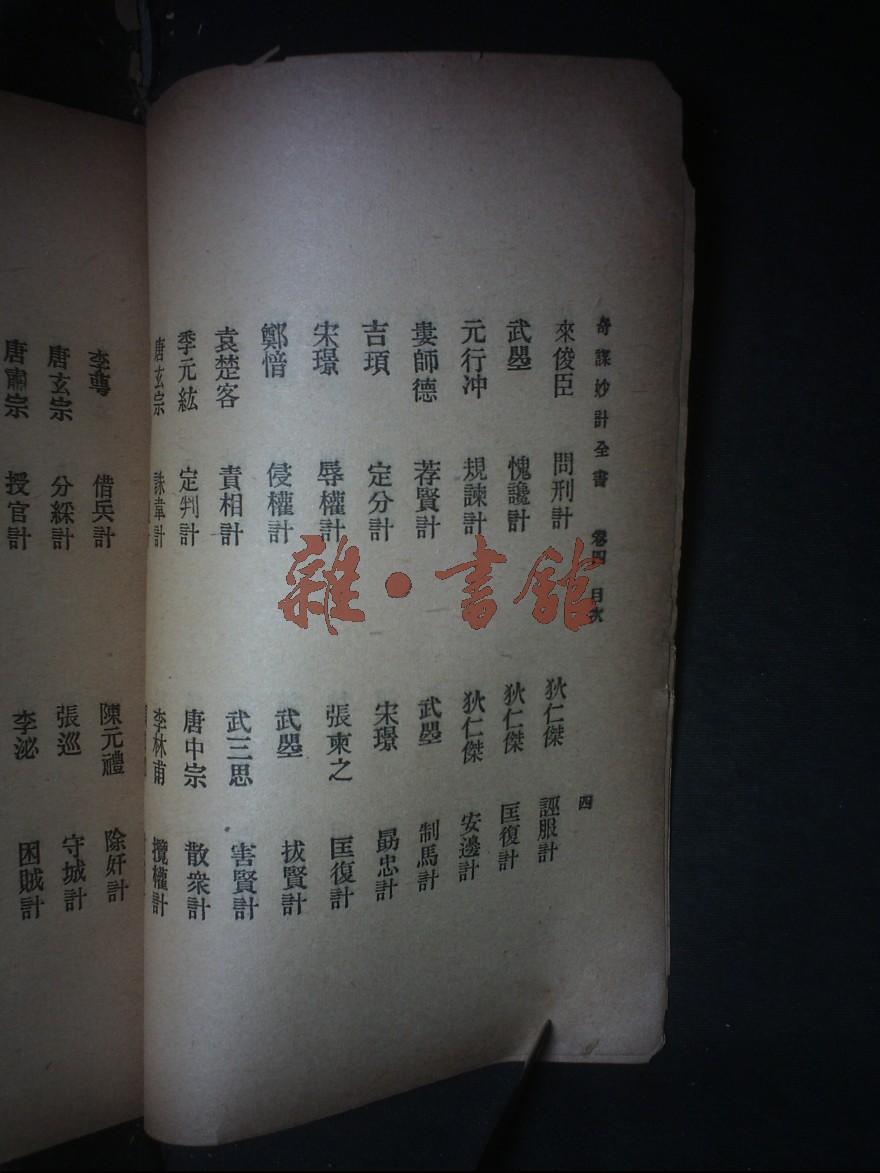 奇謀妙計全書 卷四 目次 四
來俊臣 問刑計 狄仁傑 誣服計
武曌 愧讒計 狄仁傑 匡復計
元行冲 規諫計 狄仁傑 安邊計
婁師德 荐賢計 武曌 制馬計
吉頊 定分計 宋璟 勗忠計
宋璟 辱權計 張柬之 匡復計
鄭愔 侵權計 武曌 拔賢計
袁楚客 責相計 武三思 害賢計
季元紘 定判計 唐中宗 散衆計
唐玄宗 誅韋計 李林甫 攬權計
借兵計 陳元禮 除奸計
唐玄宗 分綵計 張巡 守城計
唐肅宗 授官計 李泌 困賊計
雜·書館